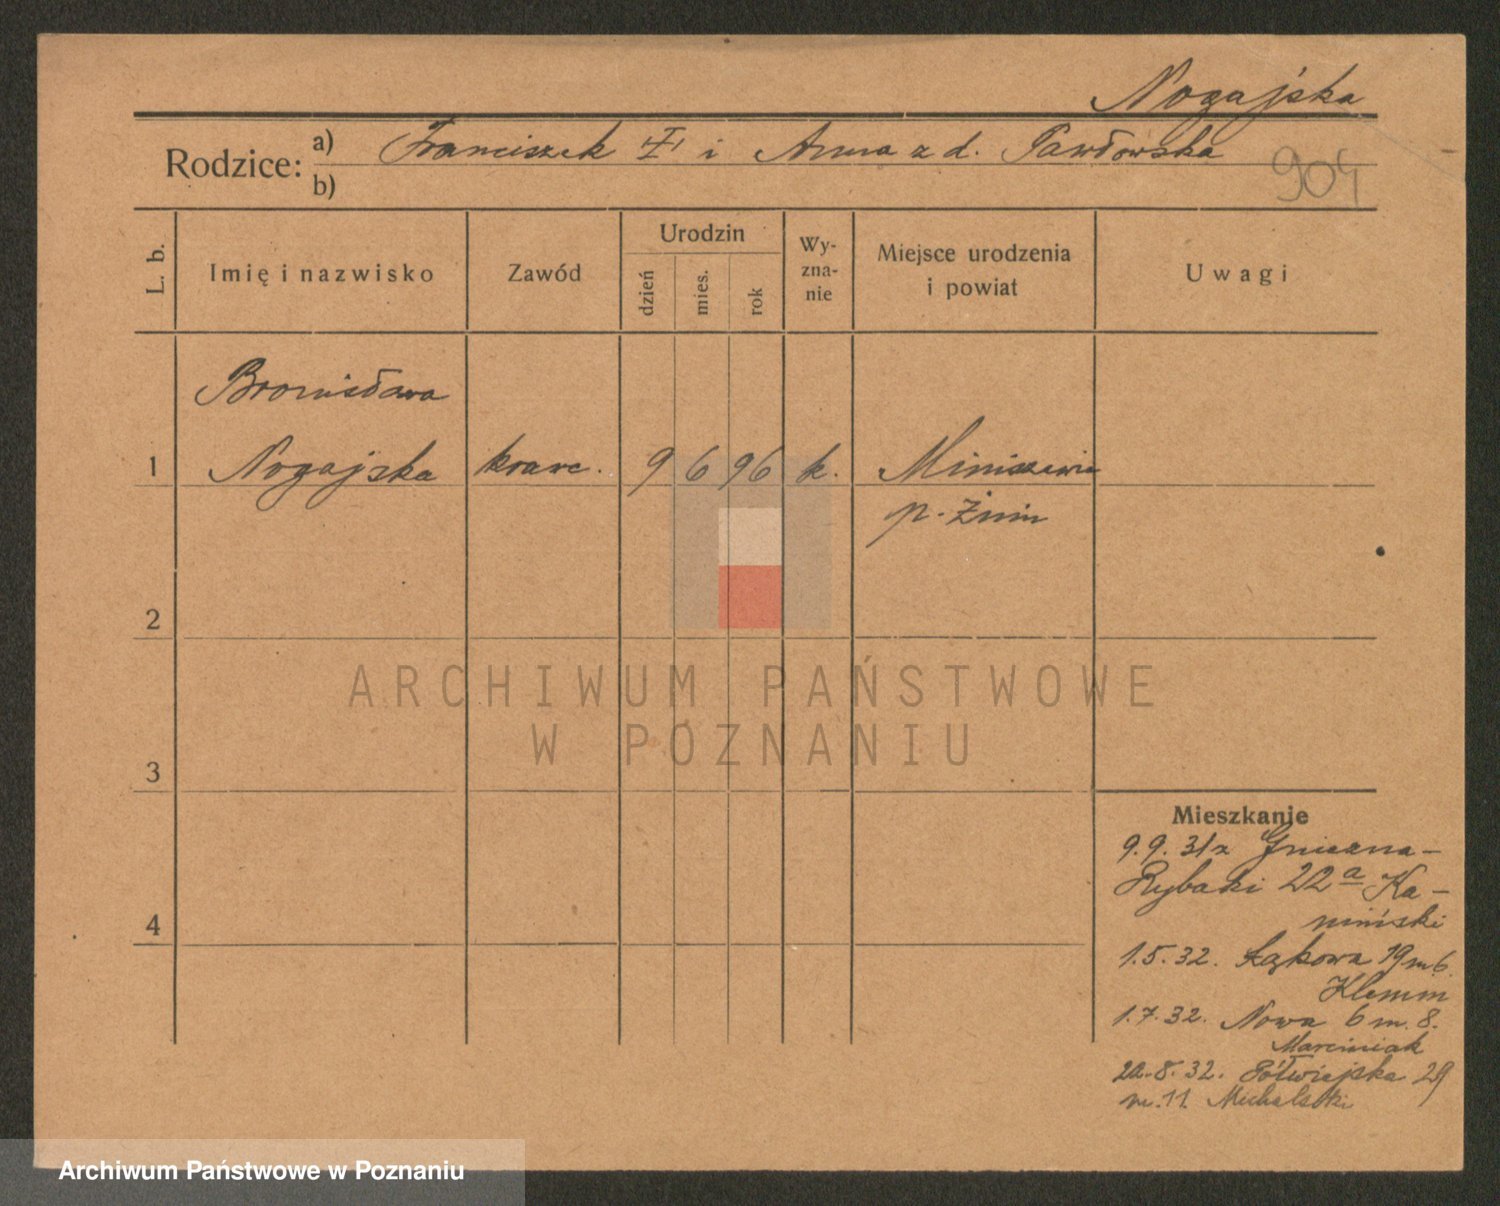 Nogajska
Rodzice: a) Franciszek i Anna z d. Pawłowska
b)
904
L. b.
Imię i nazwisko
Zawód
Urodzin
dzień
mies.
rok
Wy-
zna-
nie
Miejsce urodzenia
i powiat
Uwagi
Bronisława
1 Nogajska krawc. 9 6 96 k. Miniszewie
p. Żnin
2
ARCHIWUM PAŃSTWOWE
W POZNANIU
3
4
Mieszkanie
9.9.31 z Gniezna-
Rybaki 22a Ka-
miński
1.5.32. Łąkowa 19 m 6.
Klemm
1.7.32. Nowa 6 m. 8.
Marciniak
22.8.32. Półwiejska 29
m. 11 Michalski
Archiwum Państwowe w Poznaniu